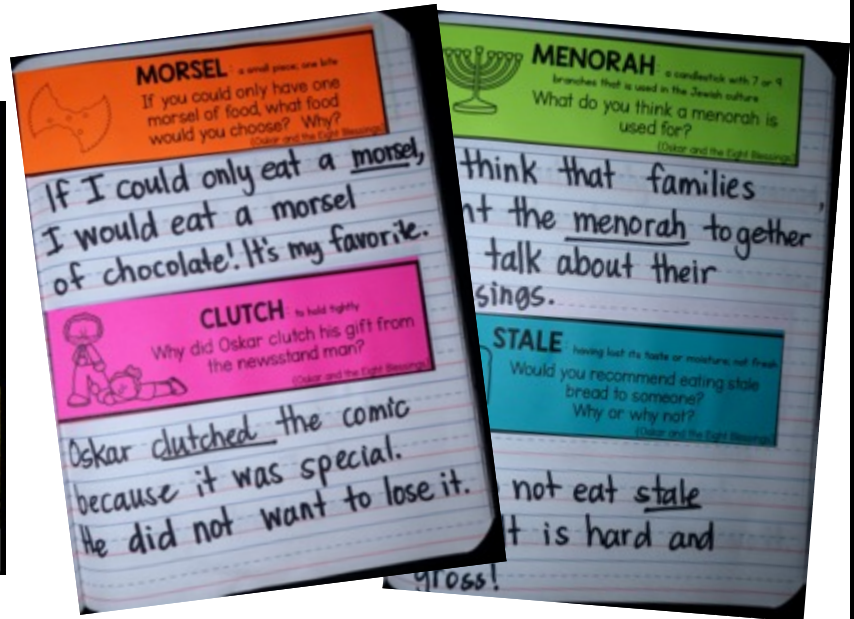 MORSEL: a small piece; one bite
If you could only have one
morsel of food, what food
would you choose? Why?
(Oskar and the Eight Blessings)
If I could only eat a morsel,
I would eat a morsel
of chocolate! It's my favorite.
CLUTCH: to hold tightly
Why did Oskar clutch his gift from
the newsstand man?
(Oskar and the Eight Blessings)
Oskar clutched the comic
because it was special.
He did not want to lose it.
MENORAH: a candlestick with 7 or 9
branches that is used in the Jewish culture
What do you think a menorah is
used for?
(Oskar and the Eight Blessings)
think that families
nt the menorah together
talk about their
sings.
STALE: having lost its taste or moisture; not fresh
Would you recommend eating stale
bread to someone?
Why or why not?
(Oskar and the Eight Blessings)
not eat stale
It is hard and
gross!